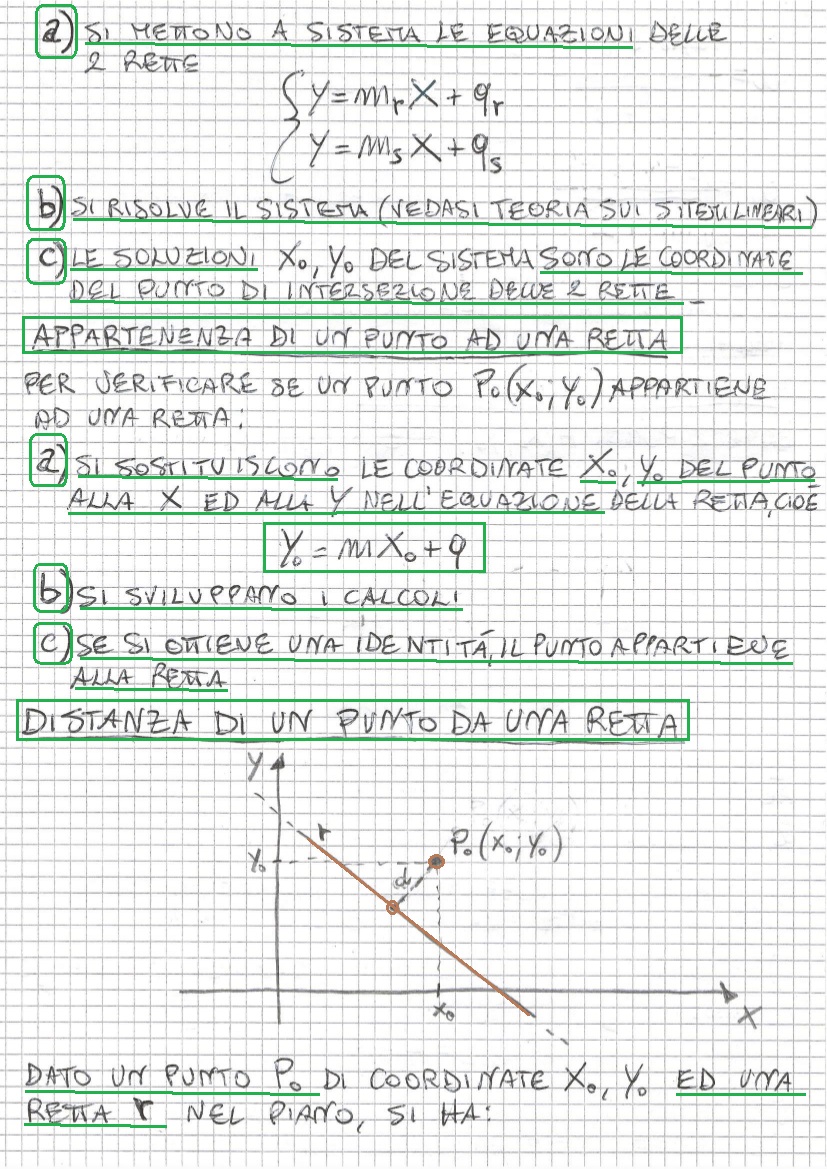 a) SI METTONO A SISTEMA LE EQUAZIONI DELLE
2 RETTE
{ Y = mᵣX + qᵣ
Y = mₛX + qₛ
b) SI RISOLVE IL SISTEMA (VEDASI TEORIA SUI SITEMI LINEARI)
c) LE SOLUZIONI X₀, Y₀ DEL SISTEMA SONO LE COORDINATE
DEL PUNTO DI INTERSEZIONE DELLE 2 RETTE _
APPARTENENZA DI UN PUNTO AD UNA RETTA
PER VERIFICARE SE UN PUNTO P₀(X₀; Y₀) APPARTIENE
AD UNA RETTA:
a) SI SOSTITUISCONO LE COORDINATE X₀; Y₀ DEL PUNTO
ALLA X ED ALLA Y NELL'EQUAZIONE DELLA RETTA, CIOÈ
Y₀ = mX₀ + q
b) SI SVILUPPANO I CALCOLI
c) SE SI OTTIENE UNA IDENTITÁ, IL PUNTO APPARTIENE
ALLA RETTA
DISTANZA DI UN PUNTO DA UNA RETTA
Y
r
P₀(X₀; Y₀)
Y₀
d
X₀
X
DATO UN PUNTO P₀ DI COORDINATE X₀, Y₀ ED UNA
RETTA r NEL PIANO, SI HA: